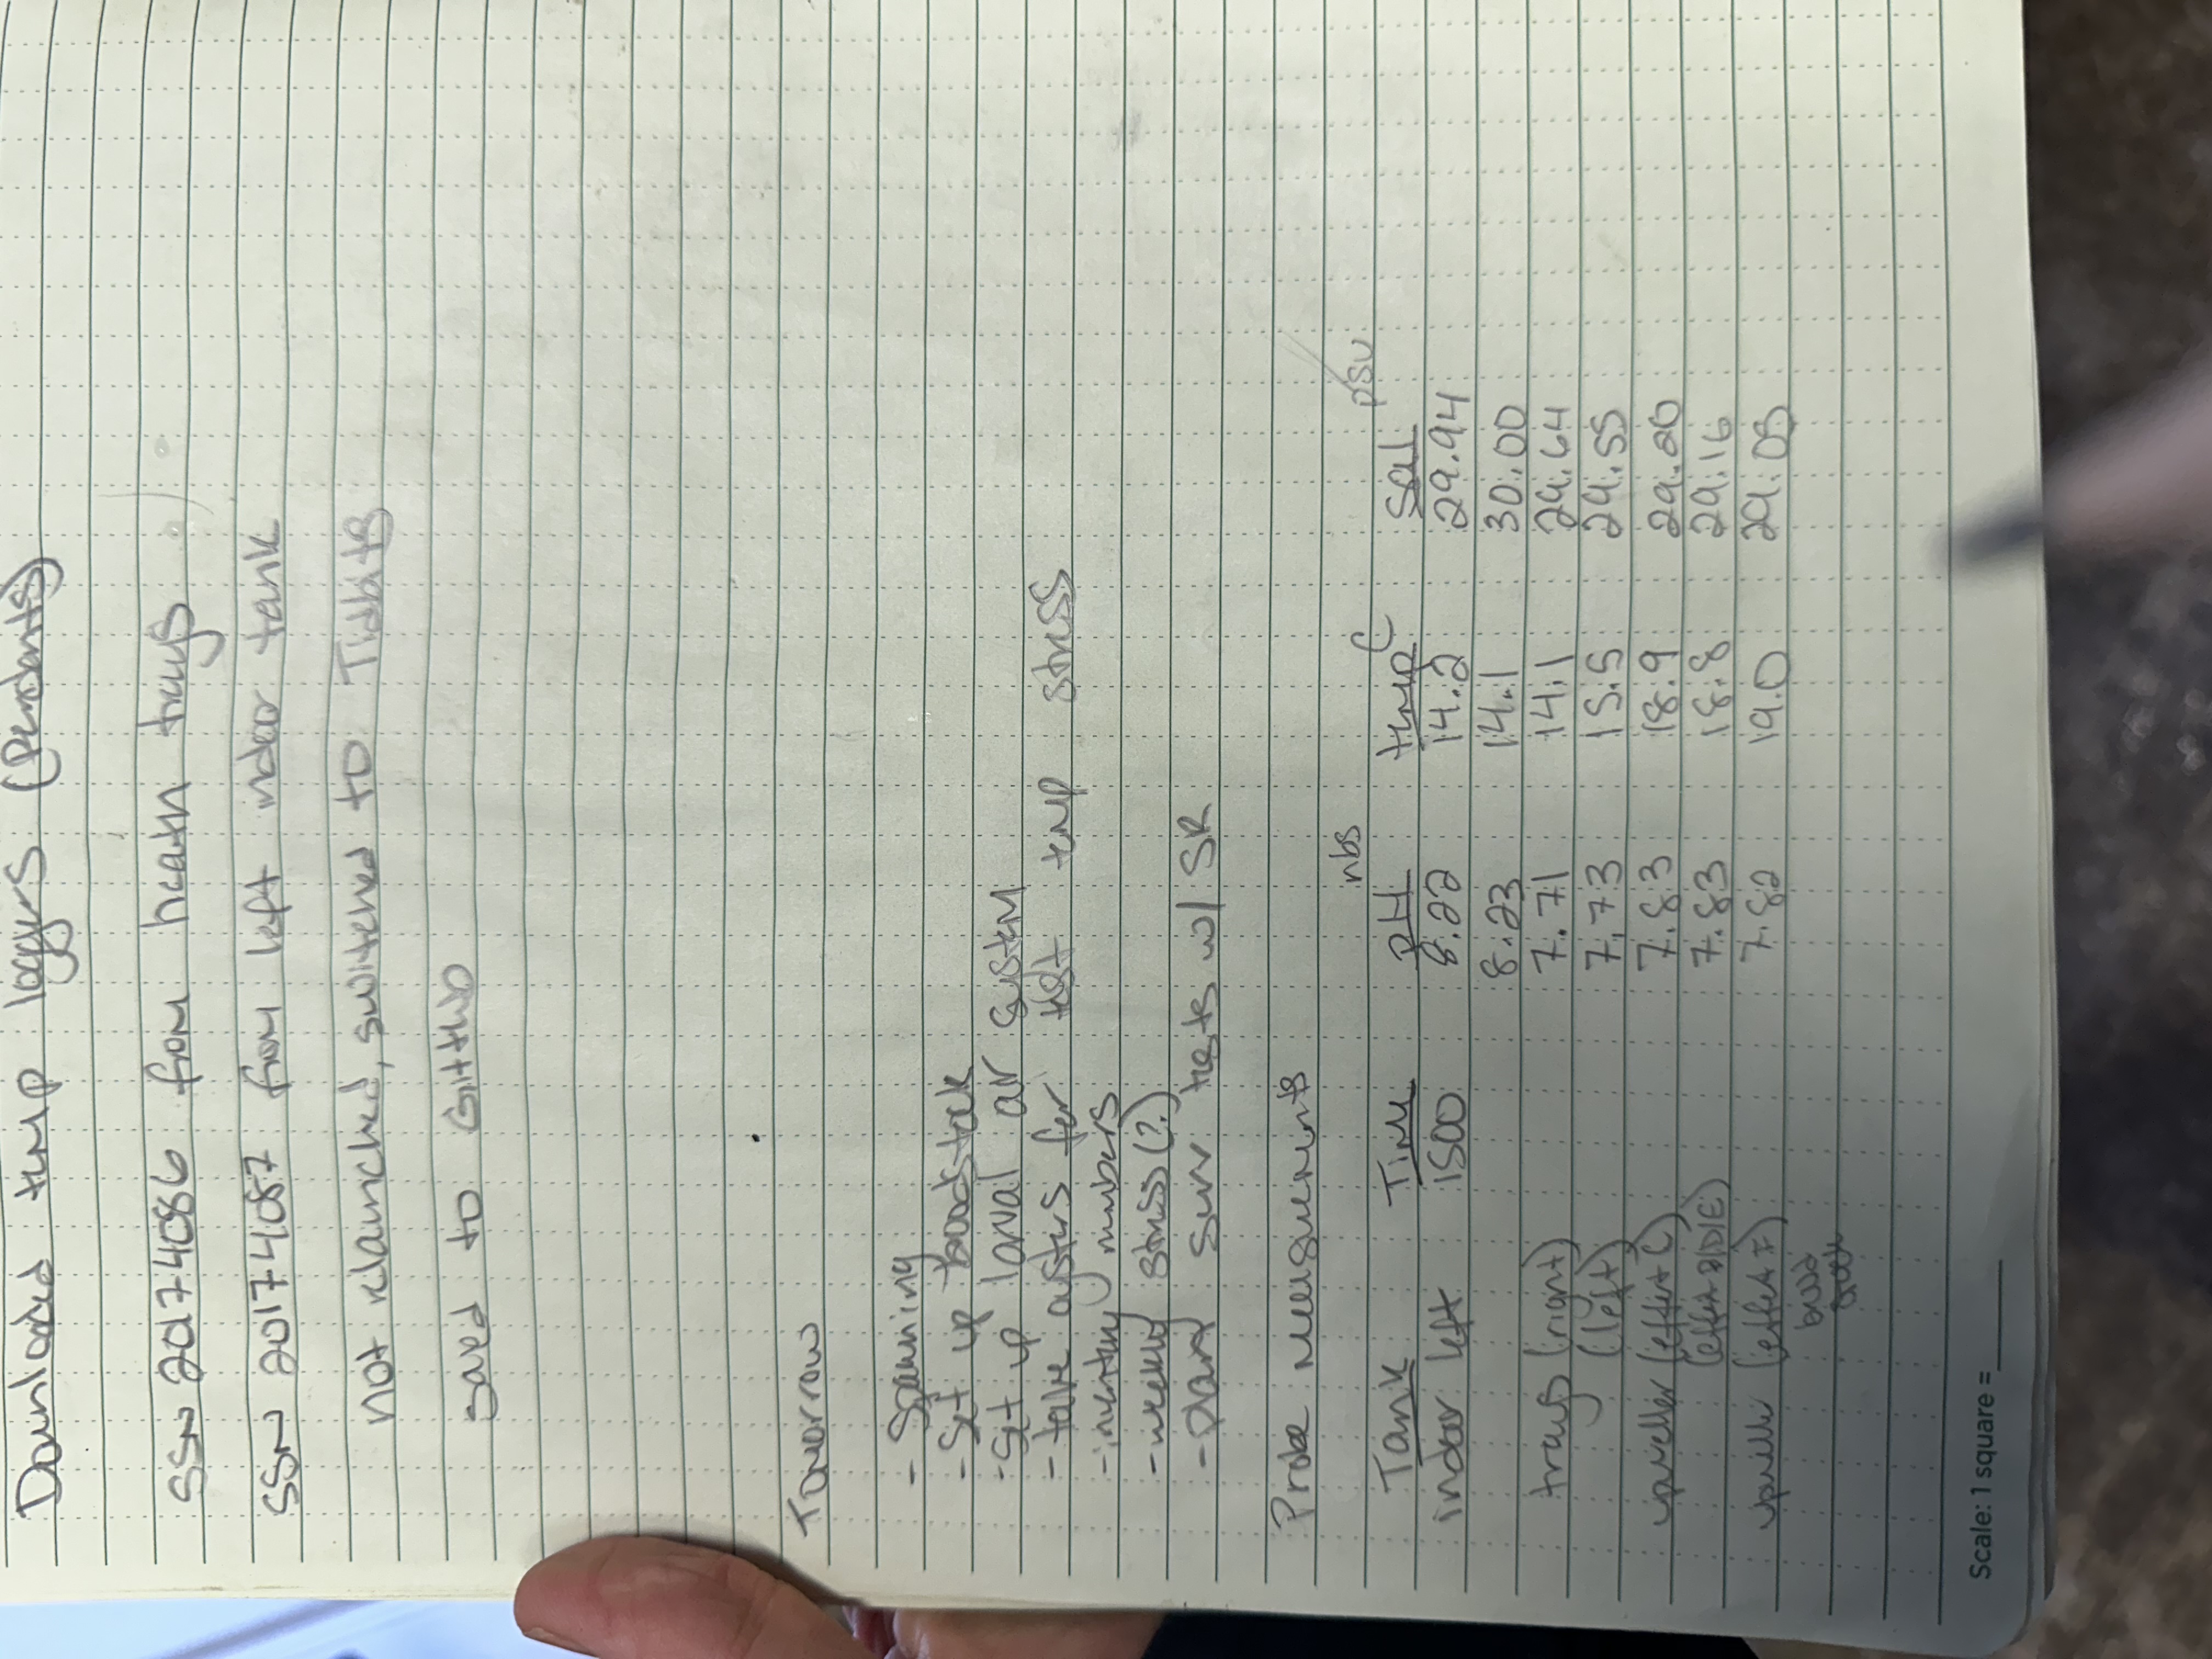 Downloaded temp loggers (Pendants)
SSN 20174086 from heath trays
SSN 20174087 from left indoor tank
not relaunched, switched to Tidbits
saved to GitHub
Tomorrow
- Spawning
- Set up broodstock
- Set up larval air system
- take oysters for test temp stress
- inventory numbers
- weekly stress (?)
- plant surv tests w/ SR
Probe measurements
nbs C psu
Tank Time pH temp Sal
indoor left 1500 8.22 14.2 29.94
8.23 14.1 30.00
trays (right) 7.71 14.1 29.64
(left) 7.73 15.5 29.55
upweller (effort C) 7.83 18.9 29.20
(effort B/D/E) 7.83 18.8 29.16
upweller (effort F) 7.82 19.0 29.05
brood
stock
Scale: 1 square =